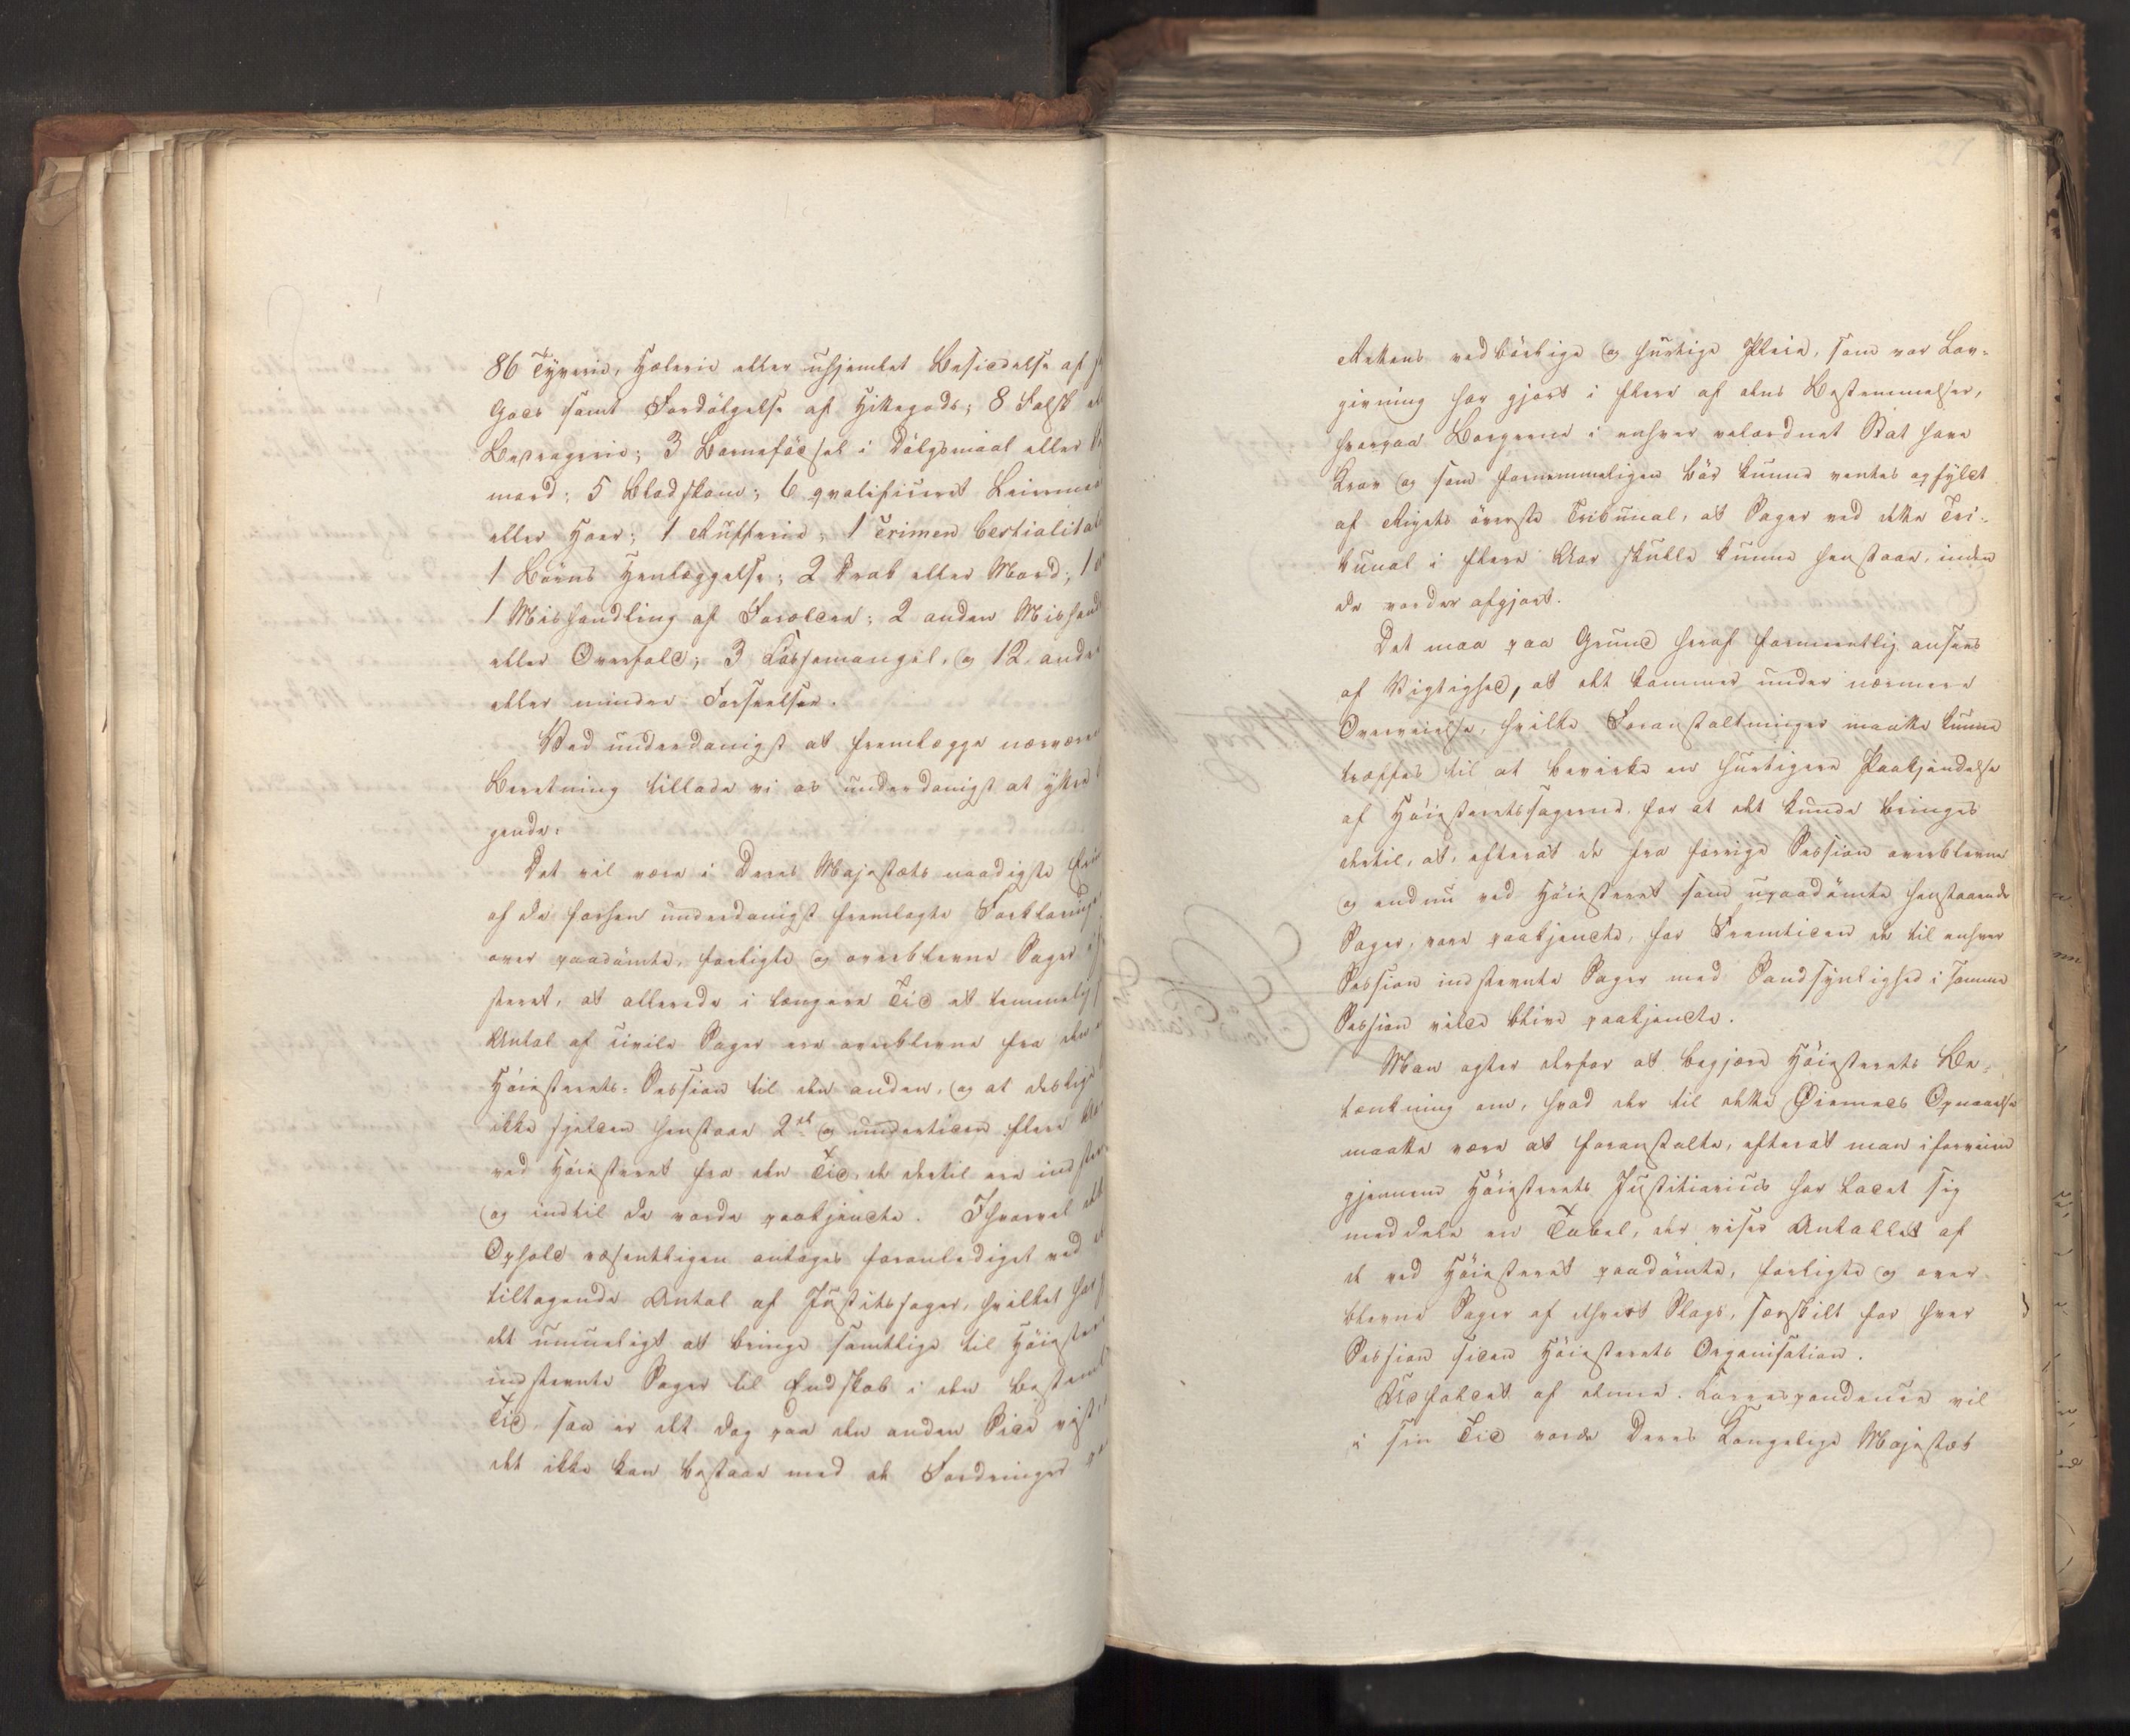 86 Tyverie, Hælerie eller uhjemlet Besiddelse af
Gods samt Fordölgelse af Hittegods; 8 Falsk
Bedragerie; 3 Barnefödsel i Dölgsmaal eller
mord; 5 Blodskam; 6 qvalificeret Leiermaal
eller Hoer; 1 Rufferie; 1 Crimen bestialitat
1 Börns Henlæggelse; 2 Drab eller Mord; 1
1 Mishandling af Forældre; 2 anden Mishand
eller Overfald; 3 Tössemangel, og 12 andre
eller mindre Forseelser.
Ved underdanigst at fremlægge nærvære
Beretning tillade vi os underdanigst at yttre
gende:
Det vil være i Deres Majestæts naadigste Erin
af de forhen underdanigst fremlagte Forklaringer
over paadömte, forligte og overblevne Sager
steret, at allerede i længere Tid et temmelig
Antal af civile Sager ere overblevne fra den
Höiesterets-Session til den anden, og at deslige
ikke sjelden henstaae 2de og undertiden flere Aar
ved Höiesteret fra den Tid, de dertil ere indstev
og indtil de vorde paakjendte. Ihvorvel dette
Ophold væsentligen antages foranlediget ved et
tiltagende Antal af Justitssager, hvilket har
det umueligt at bringe samtlige til Höiestere
indstevnte Sager til Endskab i den bestemte
Tid, saa er det dog paa den anden Side vist,
det ikke kan bestaae med de Fordringer
27
Rettens vedbörlige og hurtige Pleie, som vor Lov-
givning har gjort i flere af dens Bestemmelser,
hvorpaa Borgerne i enhver velordnet Stat have
Krav og som fornemmeligen bör kunne ventes opfyldt
af Rigets överste Tribunal, at Sager ved dette Tri-
bunal i flere Aar skulle kunne henstaae, inden
de vorder afgjort.
Det maa paa Grund heraf formeentlig ansees
af Vigtighed, at det kommer under nærmere
Overveielse, hvilke Foranstaltninger maatte kunne
træffes til at bevirke en hurtigere Paakjendelse
af Höiesteretssagerne, for at det kunde bringes
dertil, at, efterat de fra forrige Session overblevne
og endnu ved Höiesteret som upaadömte henstaaende
Sager, vare paakjendte, for Fremtiden de til enhver
Session indstevnte Sager med Sandsynlighed i samme
Session vilde blive paakjendte.
Man agter derfor at begjære Höiesterets Be-
tænkning om, hvad der til dette Öiemeds Opnaaelse
maatte være at foranstalte, efterat man iforveien
gjennem Höiesterets Justitiarius har ladet sig
meddele en Tabel, der viser Antallet af
de ved Höiesteret paadömte, forligte og over-
blevne Sager af ethvert Slags, særskilt for hver
Session siden Höiesterets Organisation.
Udfaldet af denne Correspondence vil
i sin Tid vorde Deres Kongelige Majestæt